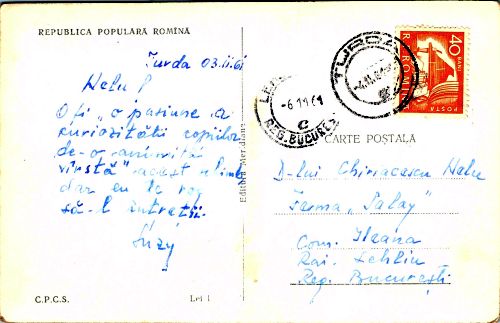 REPUBLICA POPULARĂ ROMÎNĂ
Turda 03.II.61
Nelu!
O fi „o pasiune a
curiozității copiilor
de-o anumită
vîrstă" acest
dar eu te rog
să-l întreții.
Suzy
C.P.C.S.
Lei 1
Editura Meridiane
TURDA
-6 11 61
C
REG. BUCUREȘTI
40 BANI
R.P. ROMÎNĂ
POSTA
CARTE POȘTALĂ
D-lui Chiriacescu Nelu
Ferma „Palay"
Com. Ileana
Rai. Lehliu
Reg. București